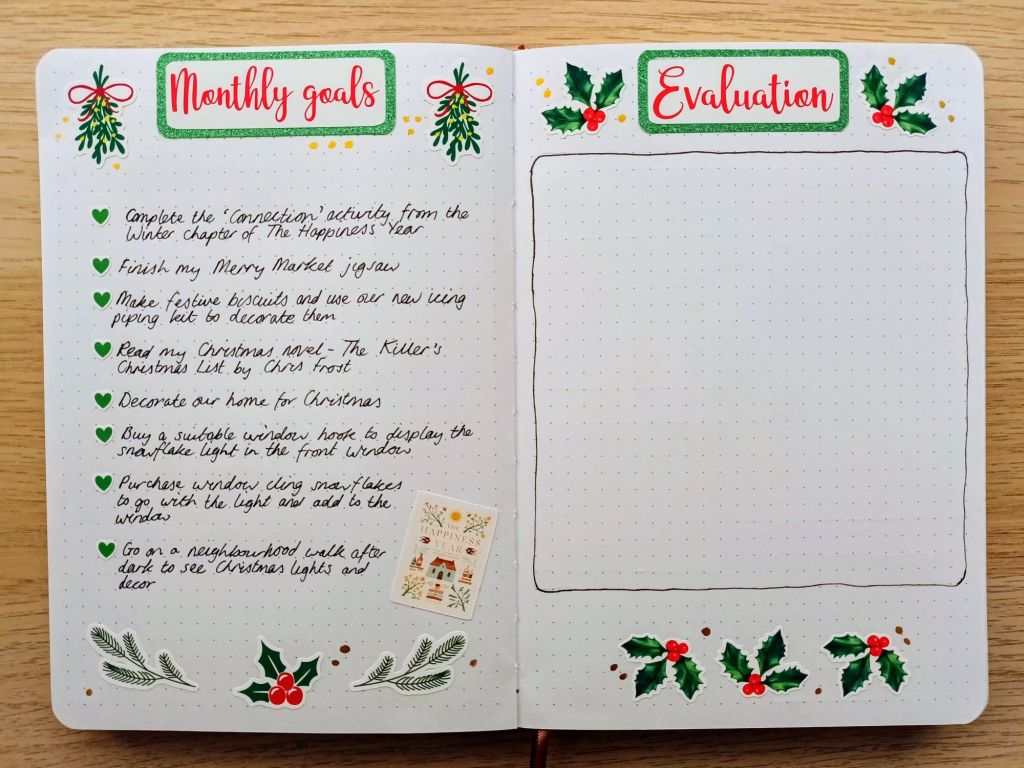 Monthly goals
Complete the 'Connection' activity from the
Winter chapter of The Happiness Year
Finish my Merry Market jigsaw
Make festive biscuits and use our new icing
piping kit to decorate them
Read my Christmas novel - The Killer's
Christmas List by Chris Frost
Decorate our home for Christmas
Buy a suitable window hook to display the
snowflake light in the front window
Purchase window cling snowflakes
to go with the light and add to the
window
Go on a neighbourhood walk after
dark to see Christmas lights and
decor
THE
HAPPINESS
YEAR
Evaluation